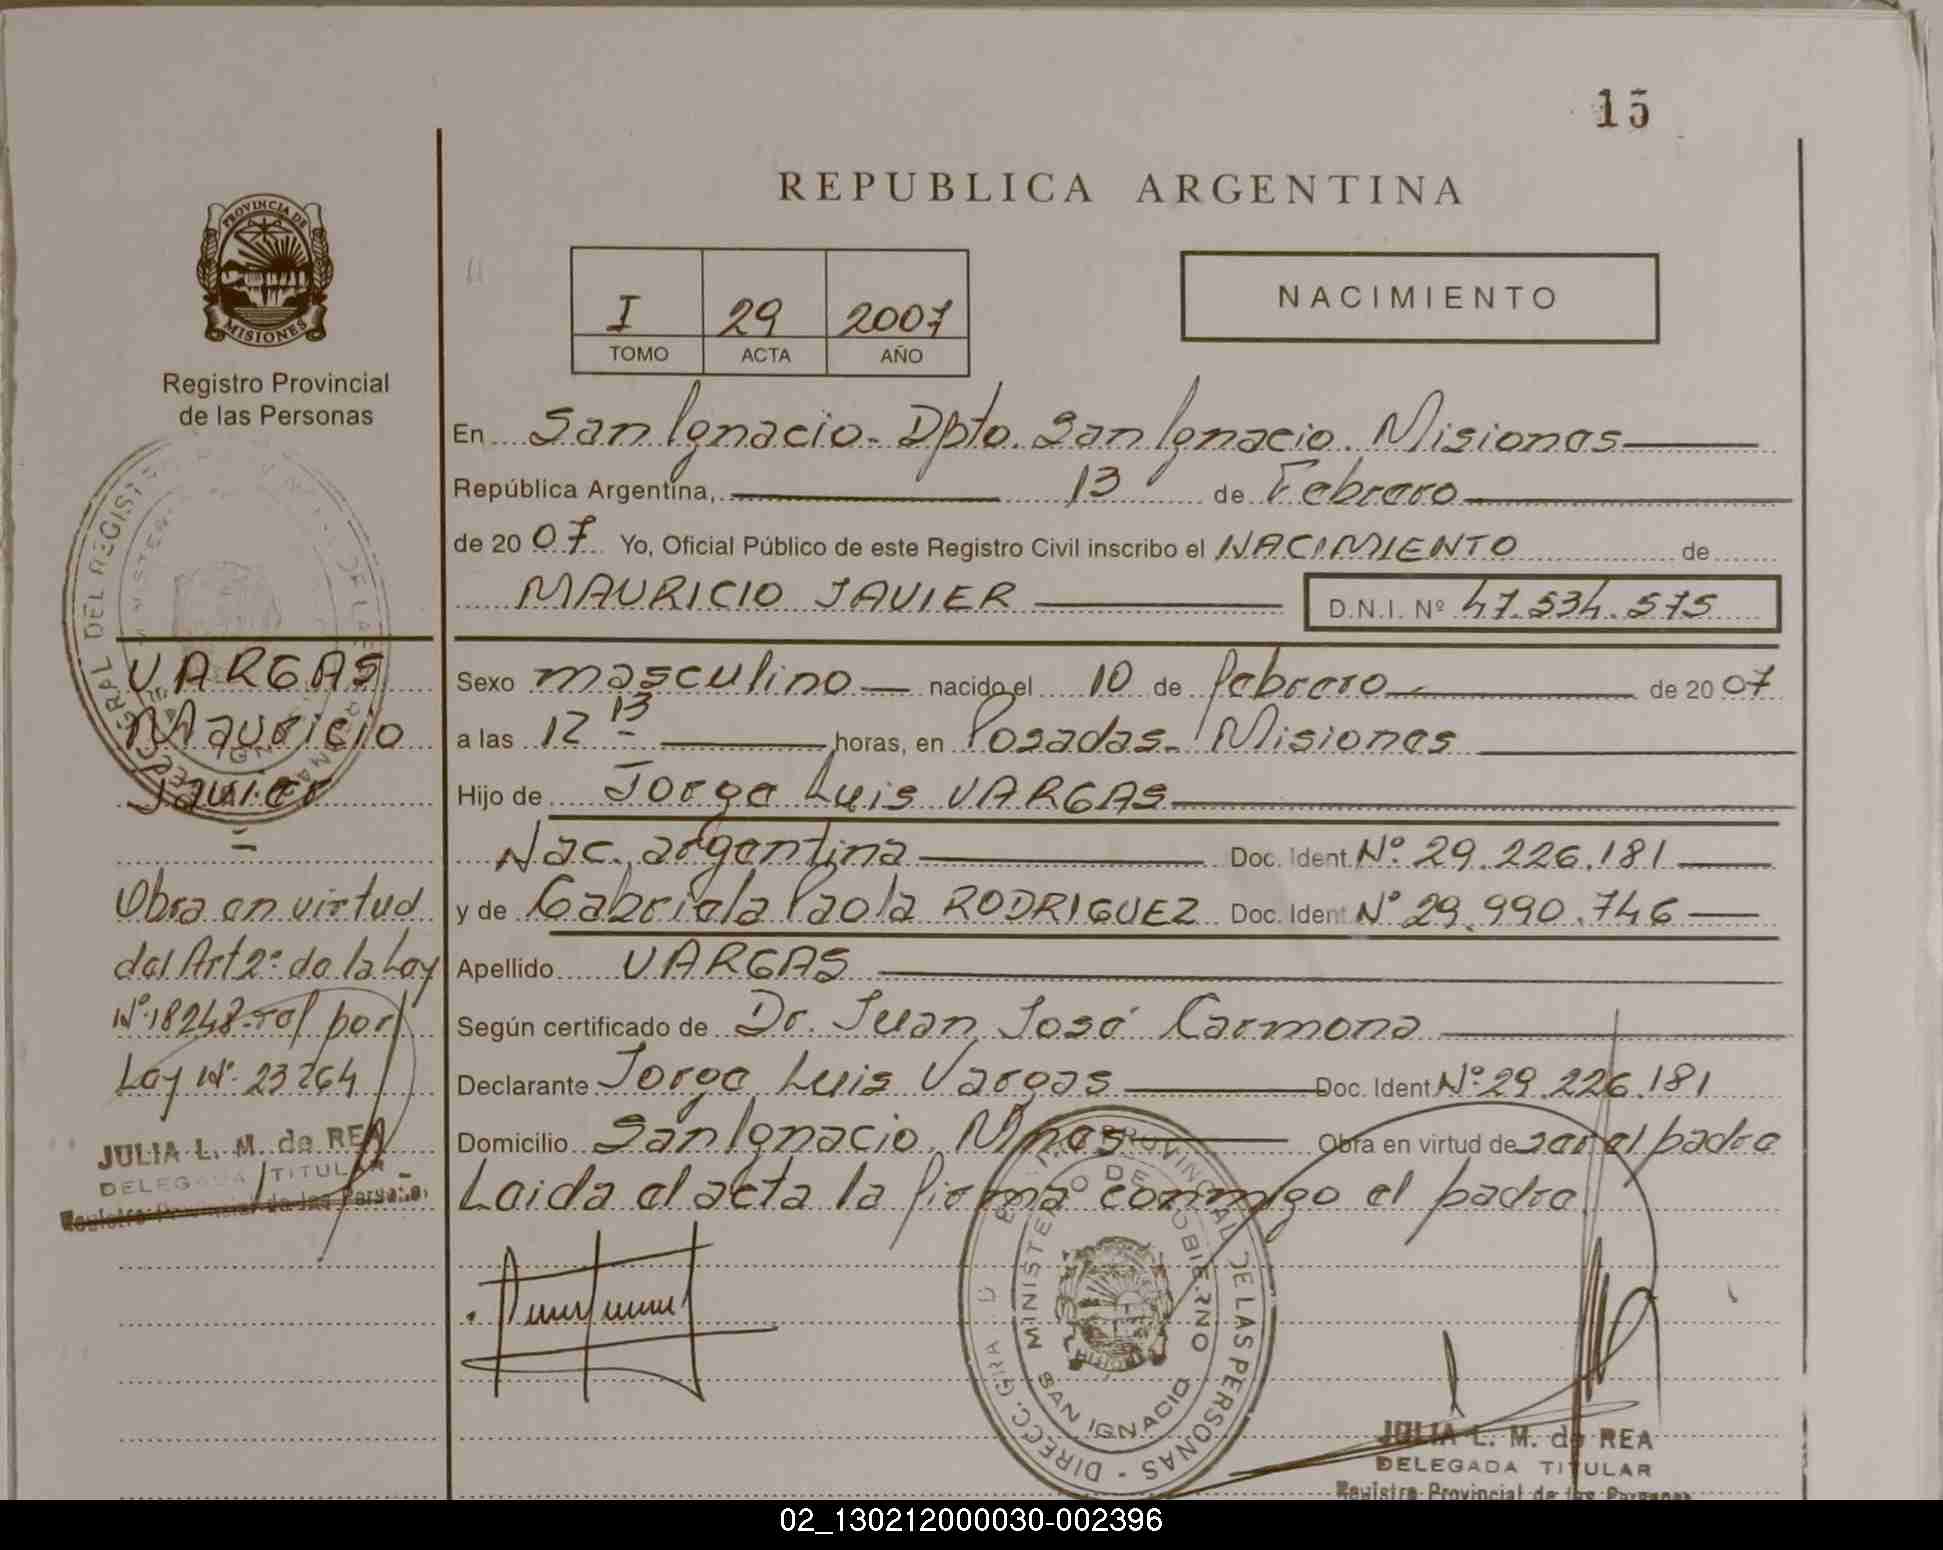 15
REPUBLICA ARGENTINA
PROVINCIA DE
MISIONES
Registro Provincial
de las Personas
I 29 2007
TOMO ACTA AÑO
NACIMIENTO
En San Ignacio - Dpto. San Ignacio. Misiones
República Argentina, 13 de Febrero
de 2007 Yo, Oficial Público de este Registro Civil inscribo el NACIMIENTO de
MAURICIO JAVIER D.N.I. Nº 47.534.575
VARGAS
Mauricio
Javier
Sexo masculino nacido el 10 de febrero de 2007
a las 12 13 horas, en Posadas - Misiones
Hijo de Jorge Luis VARGAS
Nac. argentina Doc. Ident. Nº 29.226.181
y de Gabriela Paola RODRIGUEZ Doc. Ident Nº 29.990.746
Apellido VARGAS
Según certificado de Dr. Juan José Carmona
Declarante Jorge Luis Vargas Doc. Ident Nº 29.226.181
Domicilio San Ignacio, Mnes Obra en virtud de ser el padre
Leida el acta la firma conmigo el padre.
Obra en virtud
del Art 2º de la Ley
Nº 18248 - ref por
Ley Nº 23264
JULIA L. M. de REA
DELEGADA TITULAR
Registro Provincial de las Personas
MINISTERIO DE GOBIERNO
SAN IGNACIO
JULIA L. M. de REA
DELEGADA TITULAR
Registro Provincial de las Personas
02_130212000030-002396